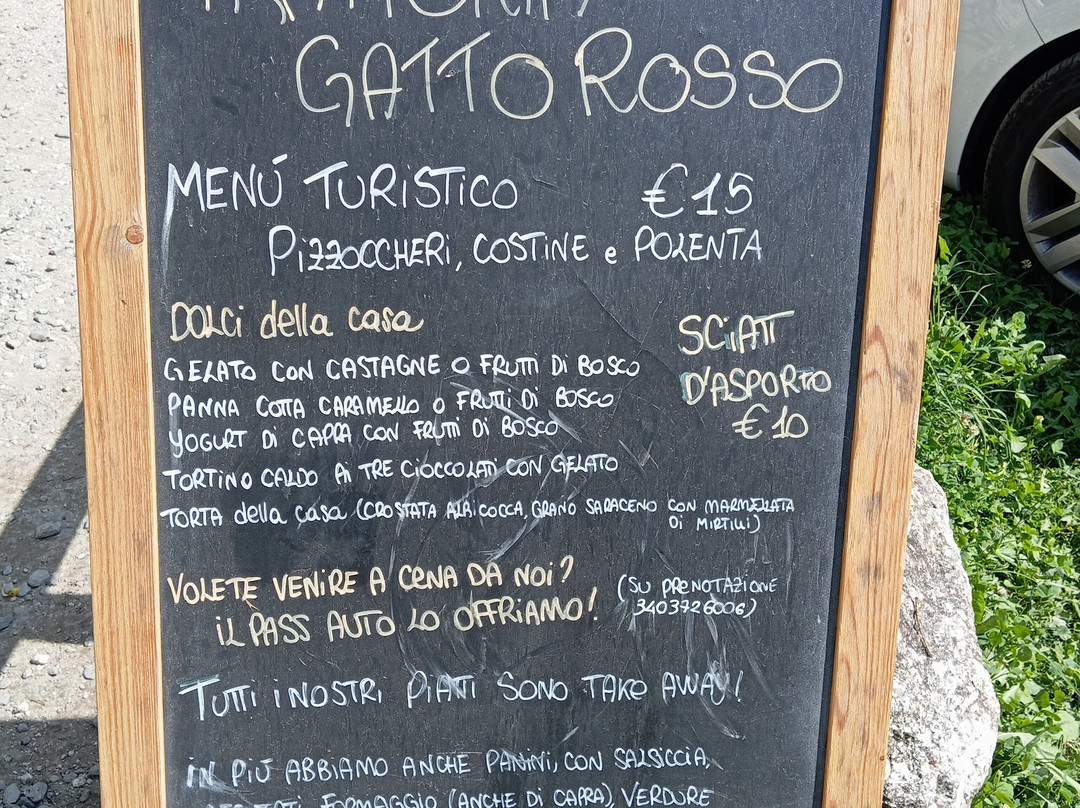 GATTO ROSSO
MENÚ TURISTICO €15
PIZZOCCHERI, COSTINE e POLENTA
DOLCI della casa
GELATO CON CASTAGNE O FRUTTI DI BOSCO
PANNA COTTA CARAMELLO O FRUTTI DI BOSCO
YOGURT DI CAPRA CON FRUTTI DI BOSCO
TORTINO CALDO AI TRE CIOCCOLATI CON GELATO
TORTA della casa (CROSTATA ALBICOCCA, GRANO SARACENO CON MARMELLATA
DI MIRTILLI)
SCIATT
D'ASPORTO
€10
VOLETE VENIRE A CENA DA NOI?
IL PASS AUTO LO OFFRIAMO!
(SU PRENOTAZIONE
3403726006)
TUTTI I NOSTRI PIATTI SONO TAKE AWAY!
IN PIÙ ABBIAMO ANCHE PANINI, CON SALSICCIA,
FORMAGGIO (ANCHE DI CAPRA), VERDURE